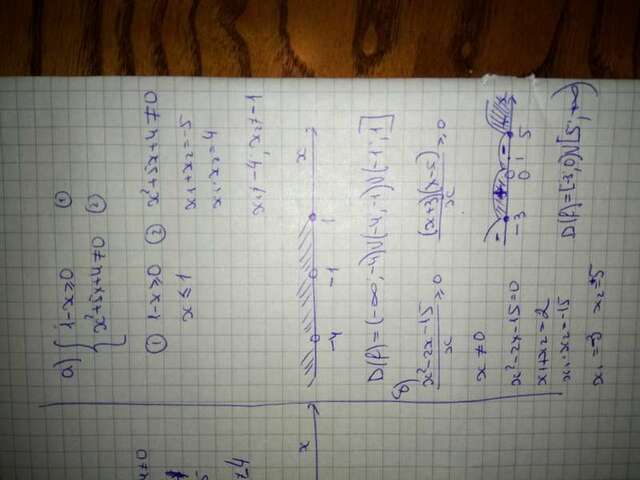 ≠0
≠4
x
а) { 1-x≥0 ①
x²+5x+4≠0 ②
① 1-x≥0 ② x²+5x+4≠0
x≤1
x₁+x₂=-5
x₁·x₂=4
x₁≠-4, x₂≠-1
x
-4 -1 1
D(f)=(-∞;-4)∪(-4,-1)∪(-1;1]
б)
x²-2x-15/x ≥0 (x+3)(x-5)/x ≥0
x≠0
- + - +
-3 0 1 5
x²-2x-15=0
x₁+x₂=2
x₁·x₂=-15
D(f)=[-3,0)∪[5;+∞)
x₁=-3 x₂=5